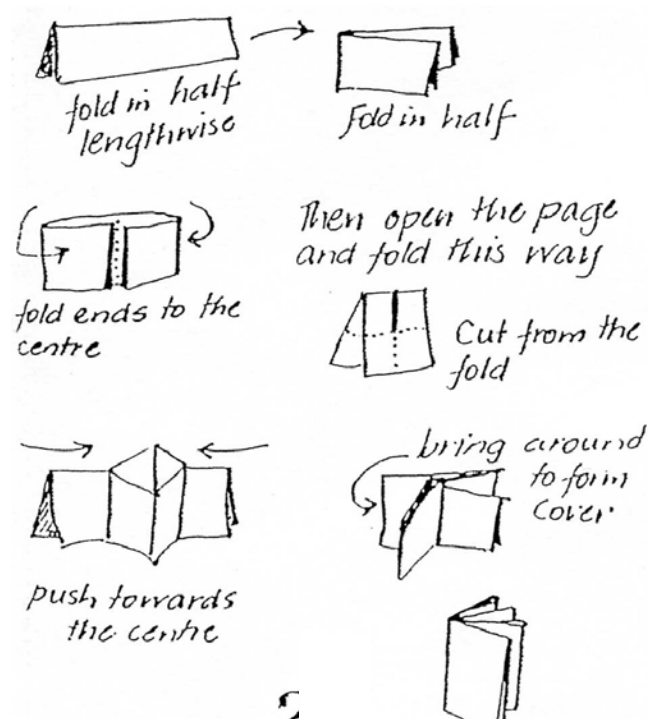 fold in half
lengthwise
Fold in half
fold ends to the
centre
Then open the page
and fold this way
Cut from the
fold
push towards
the centre
bring around
to form
cover